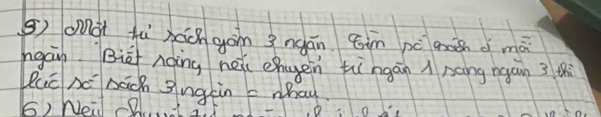 5) Một tủ sách gồm 3 ngăn. Tìm số sách ở mỗi
ngăn. Biết rằng nếu chuyển từ ngăn 1 sang ngăn 3 thì
lúc số sách 3 ngăn = nhau.
6) Nếu